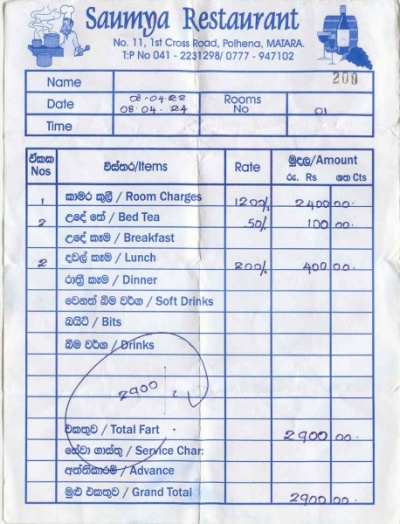 Saumya Restaurant
No. 11, 1st Cross Road, Polhena, MATARA.
T:P No 041 - 2231298/ 0777 - 947102
200
Name
Date 08-04-22 08.04.24 Rooms No 01
Time
ඒකක Nos විස්තර/Items Rate මුදල/Amount රු. Rs ශත Cts
1 කාමර කුලී / Room Charges 1200/- 2400 00.
2 උදේ තේ / Bed Tea 50/- 100 00.
උදේ කෑම / Breakfast
2 දවල් කෑම / Lunch 200/- 400 00.
රාත්‍රී කෑම / Dinner
වෙනත් බීම වර්ග / Soft Drinks
බයිට් / Bits
බීම වර්ග / Drinks
2900
එකතුව / Total Fart 2900 00.
සේවා ගාස්තු / Service Char:
අත්තිකාරම් / Advance
මුළු එකතුව / Grand Total 2900 00.